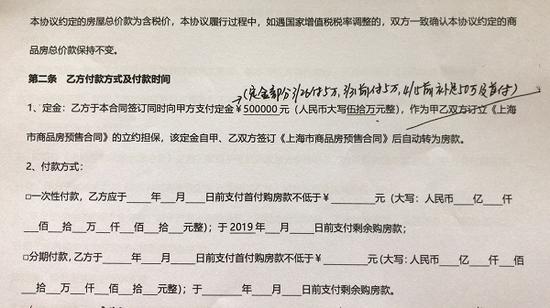 本协议约定的房屋总价款为含税价。本协议履行过程中，如遇国家增值税税率调整的，双方一致确认本协议约定的商
品房总价款保持不变。
第二条 乙方付款方式及付款时间
（定金部分3/26付5万，3/31前付5万，4/15前补足50万及首付）
1、定金：乙方于本合同签订同时向甲方支付定金￥500000元（人民币大写伍拾万元整），作为甲乙双方订立《上海
市商品房预售合同》的立约担保，该定金自甲、乙双方签订《上海市商品房预售合同》后自动转为房款。
2、付款方式：
□一次性付款，乙方应于____年___月___日前支付首付购房款不低于￥________元（大写：人民币___亿___仟
___佰___拾___万___仟___佰___拾___元整）；于 2019 年___月____日前支付剩余购房款；
□分期付款，乙方于____年___月___日前支付首付购房款不低于￥________元（大写：人民币___亿___仟___佰
___拾___万___仟___佰___拾___元整）；于____年___月___日前支付剩余购房款。